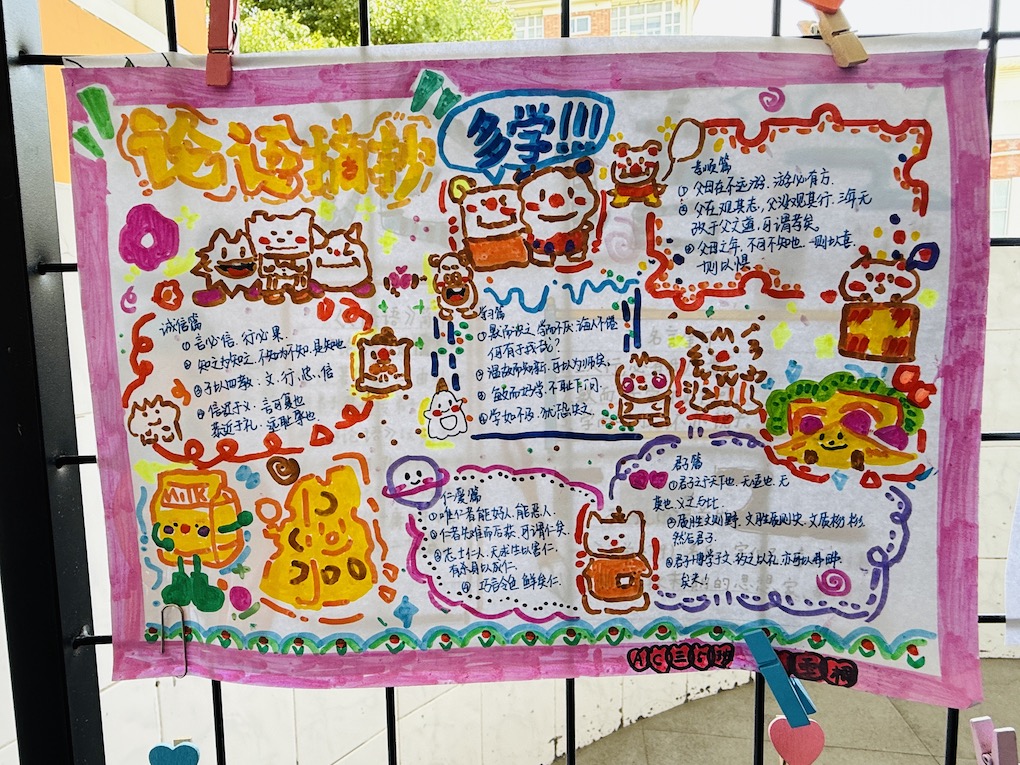 论语摘抄
多学!!!
孝顺篇
① 父母在不远游 游必有方.
② 父在观其志, 父没观其行. 三年无
改于父之道, 可谓孝矣.
③ 父母之年, 不可不知也. 一则以喜.
一则以惧.
诚信篇
① 言必信. 行必果.
② 知之为知之. 不知为不知. 是知也
③ 子以四教: 文. 行. 忠. 信
④ 信近于义. 言可复也
恭近于礼. 远耻辱也
学习篇
① 默而识之 学而不厌 诲人不倦
何有于我哉?
② 温故而知新. 可以为师矣.
③ 敏而好学. 不耻下问.
④ 学如不及 犹恐失之.
MILK
仁爱篇
① 唯仁者能好人. 能恶人.
② 仁者先难而后获. 可谓仁矣.
③ 志士仁人. 无求生以害仁.
有杀身以成仁.
④ 巧言令色 鲜矣仁.
君子篇
① 君子之于天下也. 无适也. 无
莫也. 义之与比
② 质胜文则野. 文胜质则史. 文质彬彬.
然后君子.
③ 君子博学于文 约之以礼 亦可以弗畔
矣夫.
的思想